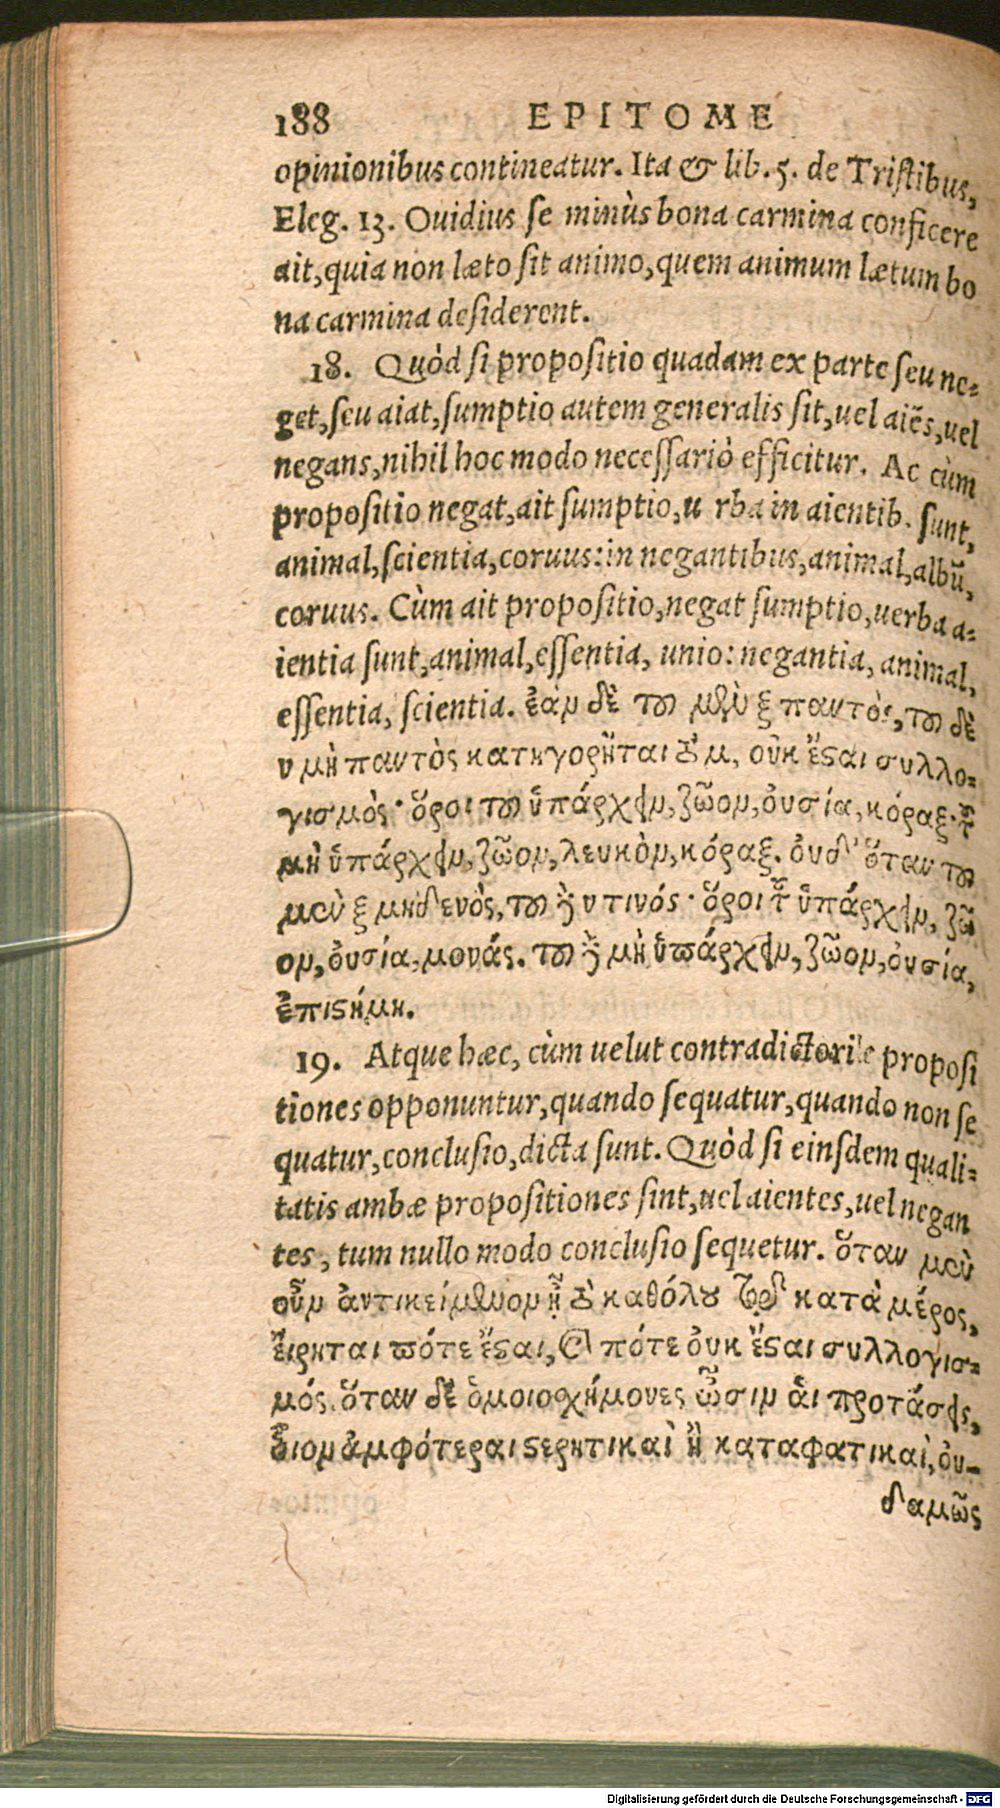 188 EPITOME
opinionibus contineatur. Ita & lib. 5. de Tristibus,
Eleg. 13. Ouidius se minùs bona carmina conficere
ait, quia non læto sit animo, quem animum lætum bo
na carmina desiderent.
18. Quòd si propositio quadam ex parte seu ne-
get, seu aiat, sumptio autem generalis sit, uel aiẽs, uel
negans, nihil hoc modo necessariò efficitur. Ac cùm
propositio negat, ait sumptio, u rba in aientib. sunt,
animal, scientia, coruus: in negantibus, animal, albũ,
coruus. Cùm ait propositio, negat sumptio, uerba a-
ientia sunt, animal, essentia, unio: negantia, animal,
essentia, scientia. ἐὰν δὲ τῳ μὲν ξ παντὸς, τῳ δὲ
ν μὴ παντὸς κατηγορῆται τὸ μ, οὐκ ἔσται συλλο-
γισμὸς· ὅροι τοῦ ὑπάρχειν, ζῶον, οὐσία, κόραξ· τοῦ
μὴ ὑπάρχειν, ζῶον, λευκὸν, κόραξ. οὐδ' ὅταν τῳ
μὲν ξ μηδενὸς, τῳ δὲ ν τινός· ὅροι τοῦ ὑπάρχειν, ζῶ
ον, οὐσία, μονάς. τοῦ δὲ μὴ ὑπάρχειν, ζῶον, οὐσία,
ἐπιστήμη.
19. Atque hæc, cùm uelut contradictoriè proposi
tiones opponuntur, quando sequatur, quando non se
quatur, conclusio, dicta sunt. Quòd si einsdem quali-
tatis ambæ propositiones sint, uel aientes, uel negan
tes, tum nullo modo conclusio sequetur. ὅταν μὲν
οὖν ἀντικείμενον ᾖ τὸ καθόλου τῷ κατὰ μέρος,
εἴρηται πότε ἔσται, καὶ πότε οὐκ ἔσται συλλογισ-
μός. ὅταν δὲ ὁμοιοσχήμονες ὦσιν αἱ προτάσεις,
οἷον ἀμφότεραι στερητικαὶ ἢ καταφατικαὶ, οὐ-
δαμῶς
Digitalisierung gefördert durch die Deutsche Forschungsgemeinschaft - DFG